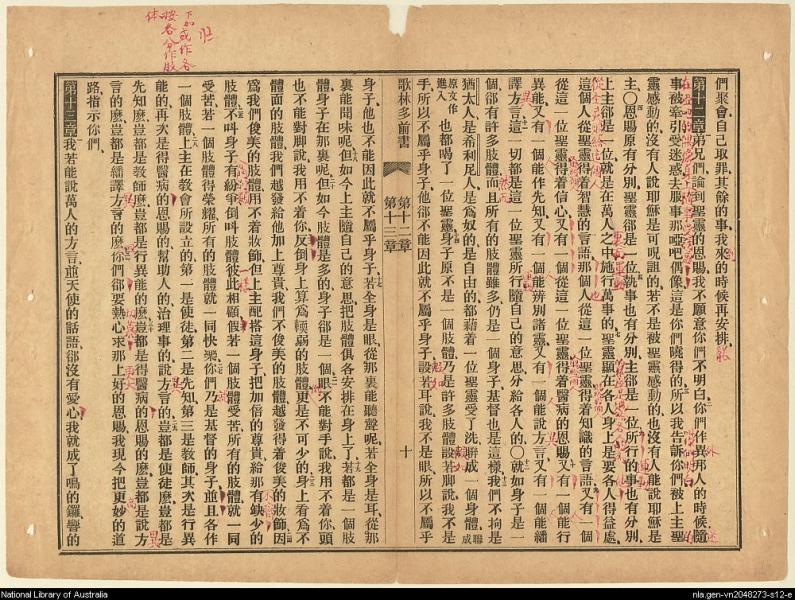 們聚會自己取罪其餘的事我來的時候再安排
第十二章弟兄們論到聖靈的恩賜我不願意你們不明白你們作異邦人的時候隨
事被牽引受迷惑去服事那啞吧偶像這是你們曉得的所以我告訴你們被上主聖
靈感動的沒有人說耶穌是可呪詛的若不是被聖靈感動的也沒有人能說耶穌是
主○恩賜原有分別聖靈卻是一位執事也有分別主卻是一位所行的事也有分別
上主卻是一位就是在萬人之中施行萬事的聖靈顯在各人身上是要各人得益處
這個人從聖靈得着智慧的言語那個人從這一位聖靈得着知識的言語又有一個
從這一位聖靈得着信心又有一個從這一位聖靈得着醫病的恩賜又有一個能行
異能又有一個能作先知又有一個能辨別諸靈又有一個能說方言又有一個能繙
譯方言這一切都是這一位聖靈所行隨自己的意思分給各人的○就如身子是一
個卻有許多肢體而且所有的肢體雖多仍是一個身子基督也是這樣我們不拘是
猶太人是希利尼人是爲奴的是自由的都藉着一位聖靈受了洗聯成一個身體聯成
原文作進入也都喝了一位聖靈身子原不是一個肢體乃是許多肢體設若脚說我不是
手所以不屬乎身子他卻不能因此就不屬乎身子設若耳說我不是眼所以不屬乎
歌林多前書
第十二章
第十三章
十
身子他也不能因此就不屬乎身子若全身是眼從那裏能聽聲呢若全身是耳從那
裏能聞味呢但如今上主隨自己的意思把肢體俱各安排在身上了若都是一個肢
體身子在那裏呢但如今肢體是多的身子卻是一個眼不能對手說我用不着你頭
也不能對脚說我用不着你反倒身上算爲輭弱的肢體更是不可少的身上看爲不
體面的肢體我們越發給他加上尊貴我們不俊美的肢體越發得着俊美的妝飾因
爲我們俊美的肢體用不着妝飾但上主配搭這身子把加倍的尊貴給那有缺少的
肢體不叫身子有紛爭倒叫肢體彼此相顧假若一個肢體受苦所有的肢體就一同
受苦若一個肢體得榮耀所有的肢體就一同快樂你們乃是基督的身子並且各作
一個肢體上主在教會所設立的第一是使徒第二是先知第三是教師其次是行異
能的再次是得醫病的恩賜的幫助人的治理事的說方言的豈都是使徒麽豈都是
先知麽豈都是教師麽豈都是行異能的麽豈都是得醫病的恩賜的麽豈都是說方
言的麽豈都是繙譯方言的麽你們卻要熱心求那上好的恩賜我現今把更妙的道
路指示你們
第十三章我若能說萬人的方言並天使的話語卻沒有愛心我就成了鳴的鑼響的
National Library of Australia
nla.gen-vn2048273-s12-e